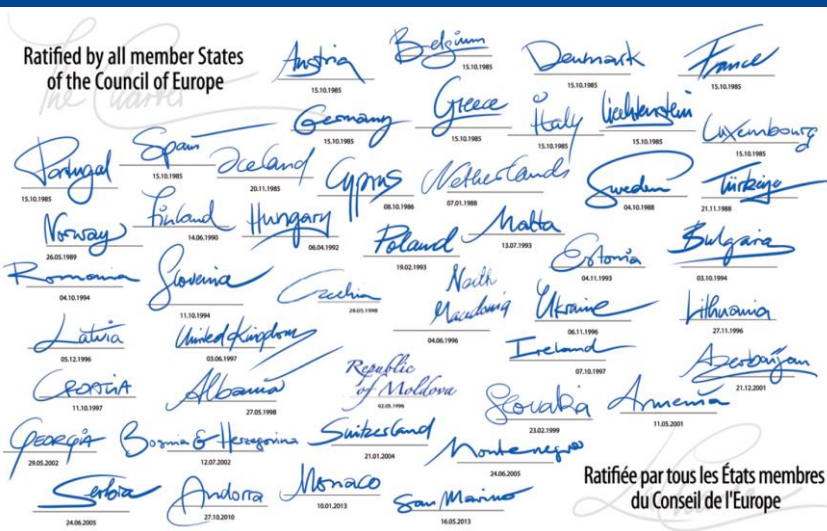 Ratified by all member States
of the Council of Europe
The Charter
Austria
15.10.1985
Belgium
15.10.1985
Denmark
15.10.1985
France
15.10.1985
Germany
15.10.1985
Greece
15.10.1985
Italy
15.10.1985
Liechtenstein
15.10.1985
Luxembourg
15.10.1985
Portugal
15.10.1985
Spain
15.10.1985
Iceland
20.11.1985
Cyprus
08.10.1986
Netherlands
07.01.1988
Sweden
04.10.1988
Türkiye
21.11.1988
Norway
26.05.1989
Finland
14.06.1990
Hungary
06.04.1992
Poland
19.02.1993
Malta
13.07.1993
Estonia
04.11.1993
Bulgaria
03.10.1994
Romania
04.10.1994
Slovenia
11.10.1994
Czechia
28.05.1998
North
Macedonia
04.06.1996
Ukraine
06.11.1996
Lithuania
27.11.1996
Latvia
05.12.1996
United Kingdom
03.06.1997
Ireland
07.10.1997
Azerbaijan
21.12.2001
CROATIA
11.10.1997
Albania
27.05.1998
Republic
of Moldova
02.05.1996
Slovakia
23.02.1999
Armenia
11.05.2001
GEORGIA
29.05.2002
Bosnia & Herzegovina
12.07.2002
Switzerland
21.01.2004
Montenegro
24.06.2005
Serbia
24.06.2005
Andorra
27.10.2010
Monaco
10.01.2013
San Marino
16.05.2013
Ratifiée par tous les États membres
du Conseil de l'Europe